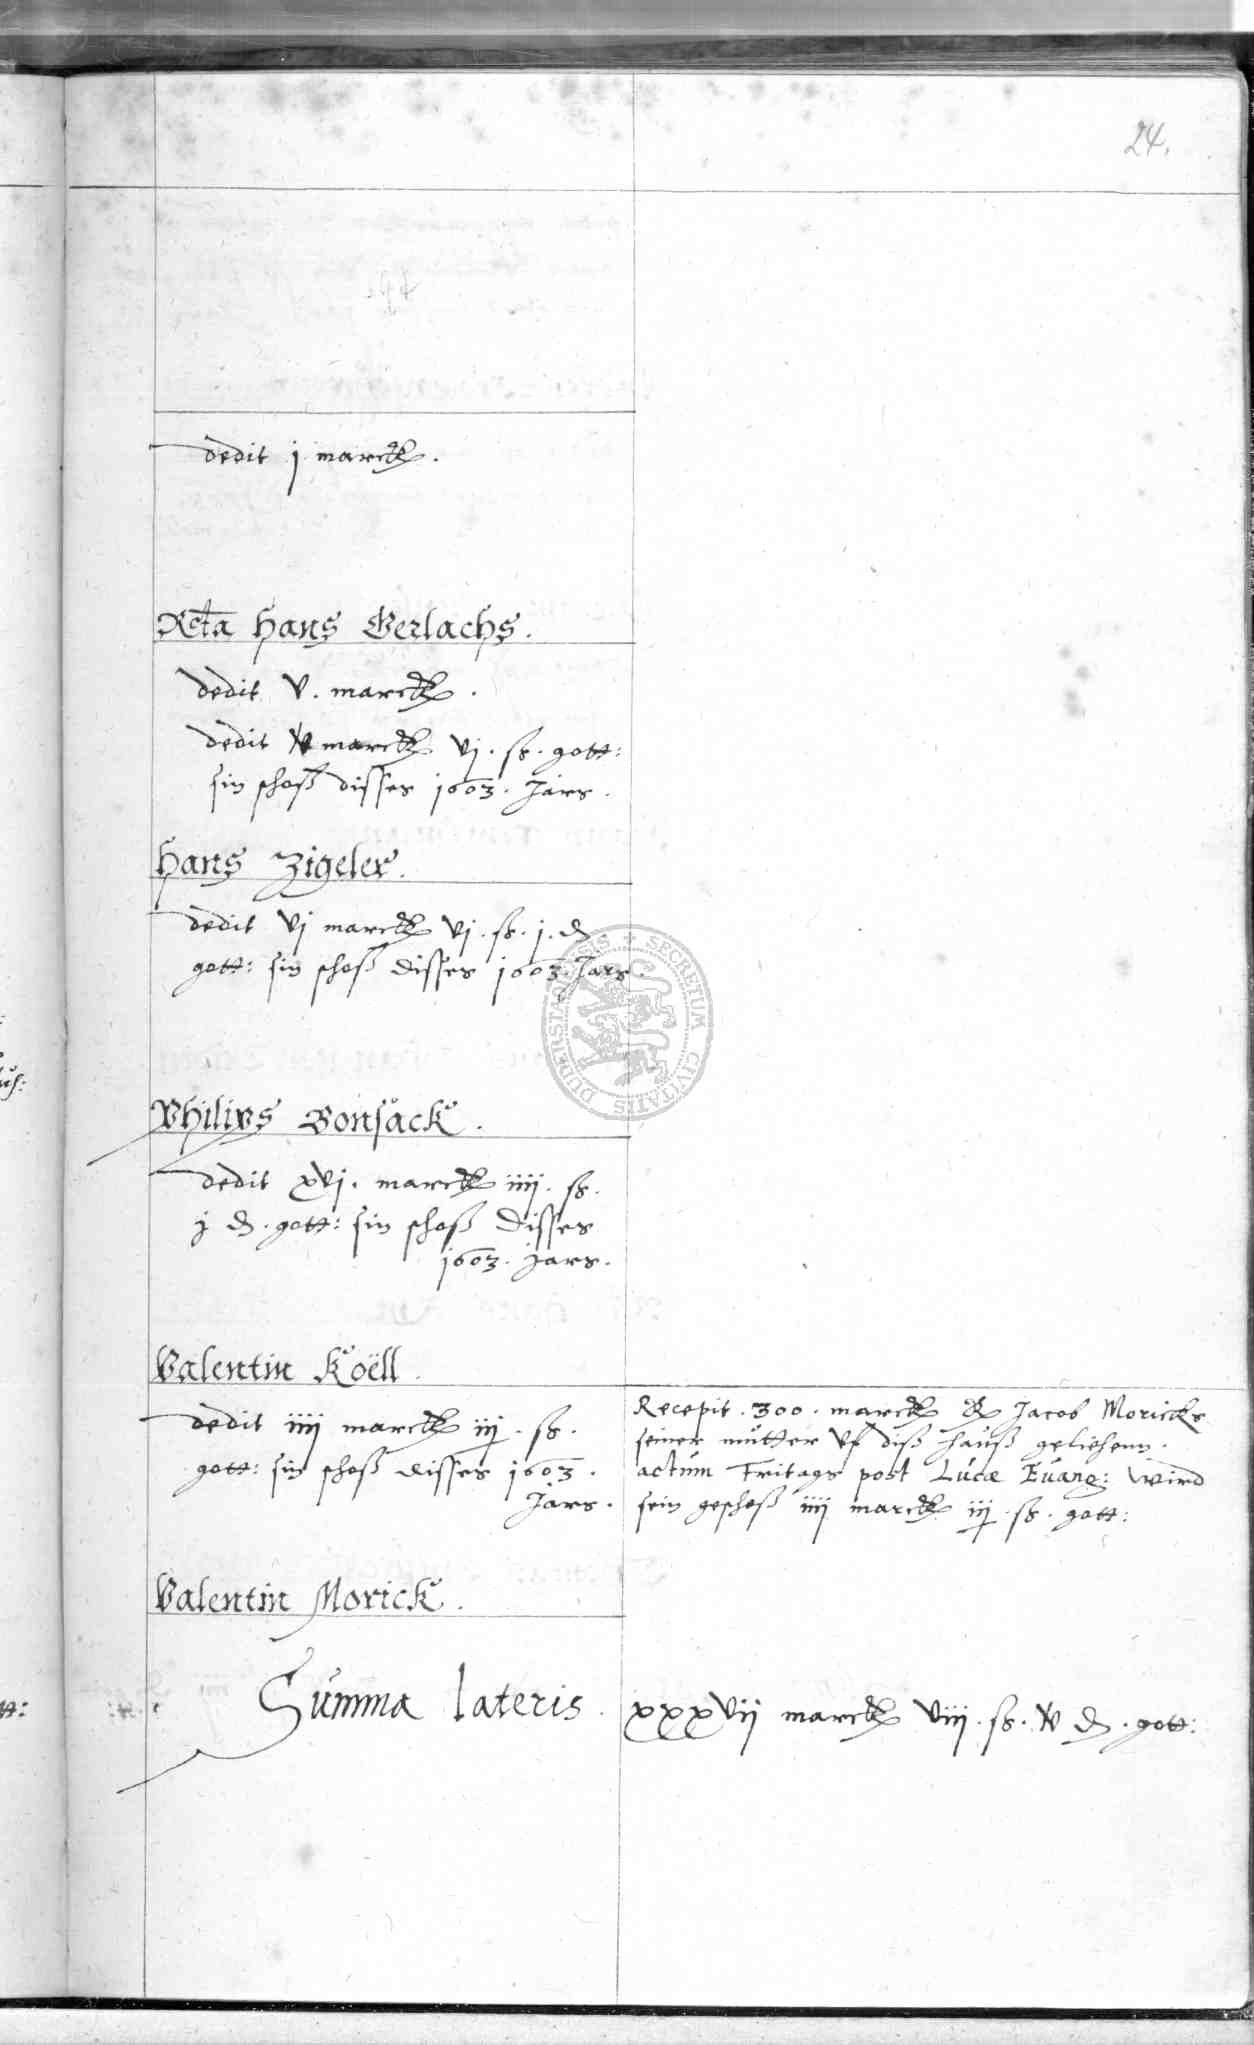 24.
dedit j marck.
Rcta Hans Gerlachs.
dedit v. marck.
dedit v marck vj. ß. gott:
sin schoß disses 1603. Jars.
Hans Zigeler.
dedit vj marck vj. ß. j. d
gott: sin schoß disses 1603. Jars.
Philips Bonsack.
dedit xvj. marck iiij. ß.
j d. gott: sin schoß disses
1603. Jars.
Valentin Koëll.
dedit iiij marck iij. ß.
gott: sin schoß disses 1603.
Jars.
Recepit .300. marck Jacob Moricks
seiner mutter vf diß hauß geliehenn.
actum Fritags post Lucae Euang: wird
sein geschoß iiij marck iij. ß. gott:
Valentin Morick.
Summa lateris. xxxvii marck viij. ß. v d. gott:
SECRETUM CIVITATIS DUDERSTADENSIS